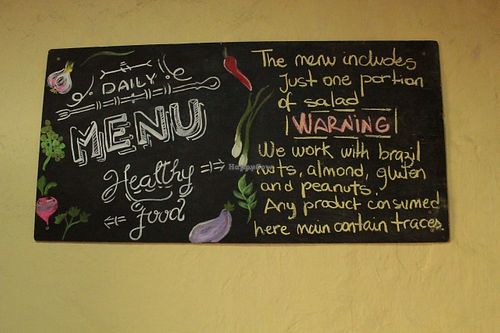 DAILY
MENU
Healthy
food
The menu includes
Just one portion
of salad
WARNING
We work with brazil
nuts, almond, gluten
and peanuts.
Any product consumed
here main contain traces.